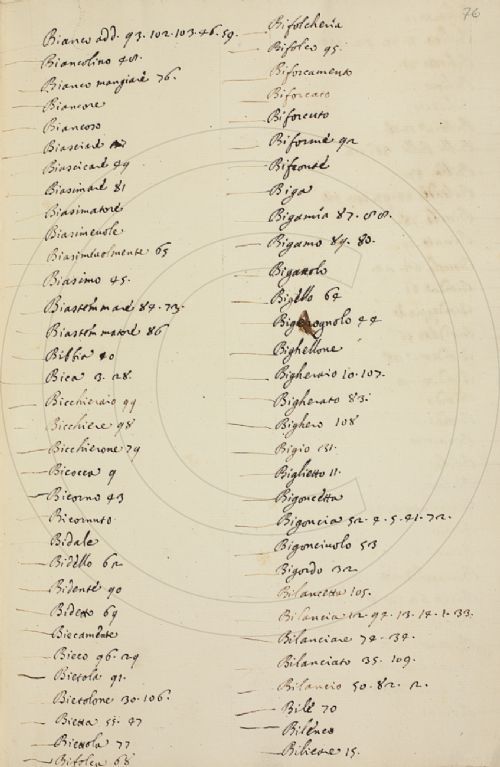 76
Bianco add. 93. 102. 103. 46. 59.
Biancolino 48.
Bianco mangiare 76.
Biancore
Biancoso
Biasciare
Biascicare 49
Biasimare 81
Biasimatore
Biasimevole
Biasimevolmente 65
Biasimo 45.
Biastemmare 84. 73.
Biastemmatore 86
Bibbia 40
Bica 3. 28.
Bicchieraio 99
Bicchiere 98
Bicchierone 79
Bicocca 9
Bicorno 43
Bicornuto
Bidale
Bidello 62
Bidente 90
Bidetto 69
Biecamente
Bieco 96. 29
Bietola 91.
Bietolone 30. 106.
Bietta 55. 47
Biettola 77
Bifolca 68
Bifolcheria
Bifolco 95.
Biforcamento
Biforcato
Biforcuto
Biforme 92
Bifronte
Biga
Bigamia 87. 88.
Bigamo 89. 80.
Bigattolo
Bigello 64
44
Bighellone
Bigheraio 10. 107.
Bigherato 83.
Bighero 108
Bigio 31.
Biglietto 11.
Bigoncetta
Bigoncia 52. 4. 5. 41. 72.
Bigonciuolo 53
Bigordo 32
Bilancetta 105.
Bilancia 12. 94. 13. 14. 1. 33.
Bilanciare 74. 34.
Bilanciato 35. 109.
Bilancio 50. 82. 2.
Bile 70
Bilenco
15.